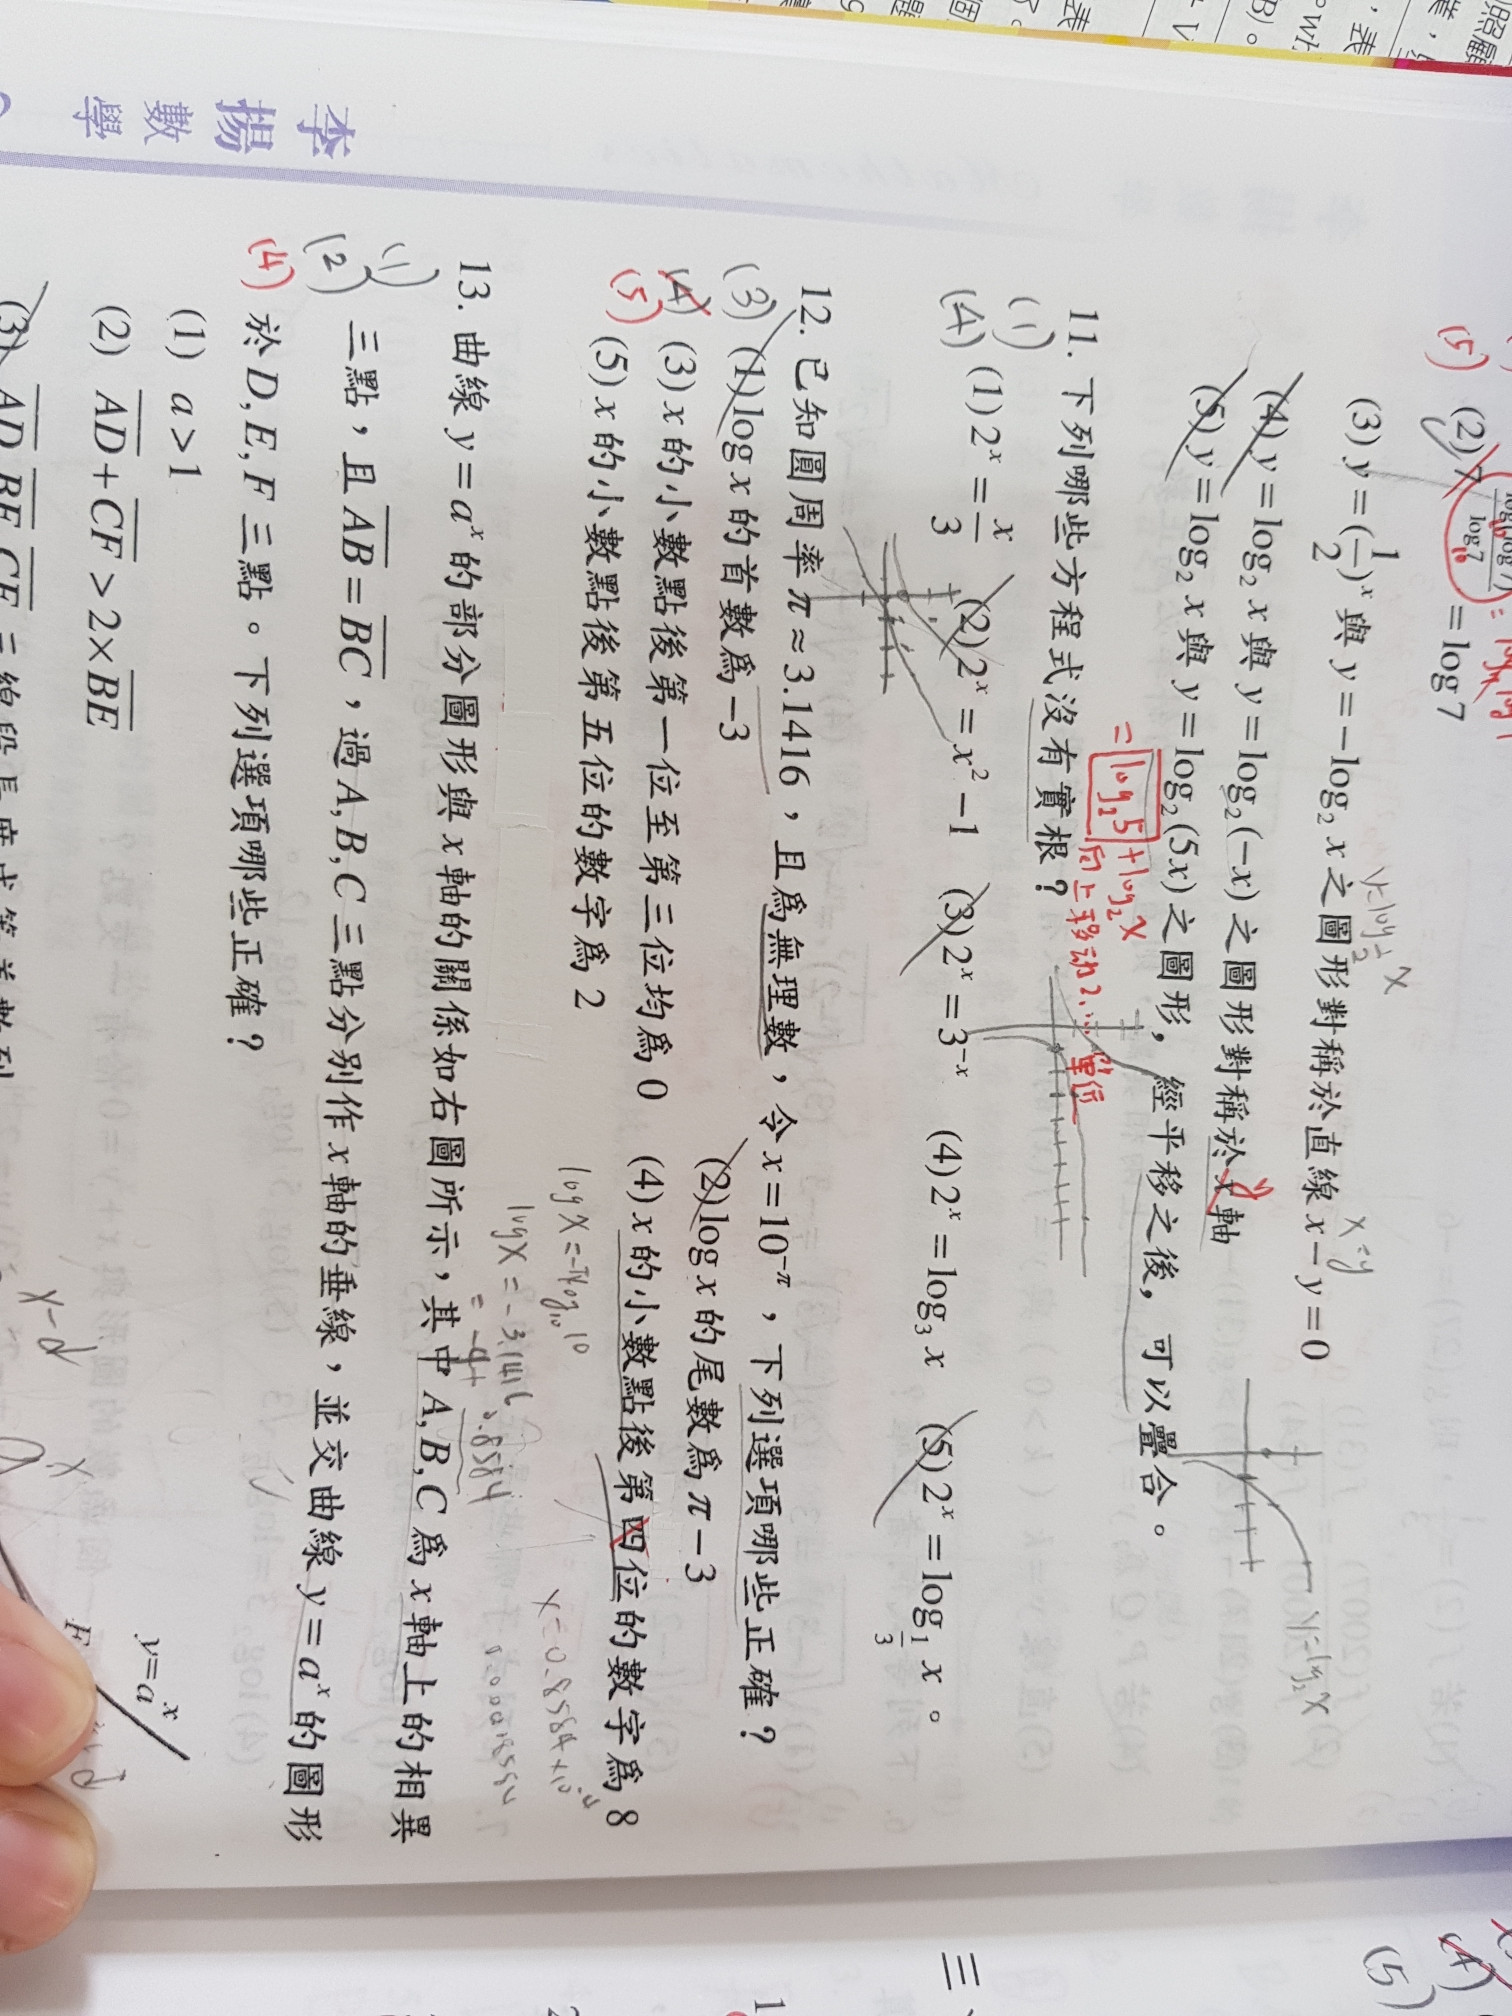 照顧
表
李揚數學
(5)
(2) 7 = log 7
(3) y = (1/2)^x 與 y = −log₂ x 之圖形對稱於直線 x − y = 0
x = y
(4) y = log₂ x 與 y = log₂(−x) 之圖形對稱於 x 軸
y
(5) y = log₂ x 與 y = log₂(5x) 之圖形，經平移之後，可以疊合。
= log₂5 + log₂X
向上移动2.… 單位
11. 下列哪些方程式沒有實根？
(1)
(4)
(1) 2^x = x/3 (2) 2^x = x² − 1 (3) 2^x = 3^−x (4) 2^x = log₃ x (5) 2^x = log_{1/3} x。
12. 已知圓周率 π ≈ 3.1416，且為無理數，令 x = 10^−π，下列選項哪些正確？
(3)
(4)
(5)
(1) log x 的首數為 −3 (2) log x 的尾數為 π − 3
(3) x 的小數點後第一位至第三位均為 0 (4) x 的小數點後第四位的數字為 8
(5) x 的小數點後第五位的數字為 2
log X = −π log₁₀ 10
log X = −3.1416
= −4 + 0.8584
X = 0.8584 × 10⁻⁴
13. 曲線 y = a^x 的部分圖形與 x 軸的關係如右圖所示，其中 A, B, C 為 x 軸上的相異
(1)
(2)
(4)
三點，且 A̅B̅ = B̅C̅，過 A, B, C 三點分別作 x 軸的垂線，並交曲線 y = a^x 的圖形
於 D, E, F 三點。下列選項哪些正確？
(1) a > 1
(2) A̅D̅ + C̅F̅ > 2 × B̅E̅
y = a^x
F
x−d
x
(3) A̅D̅, B̅E̅, C̅F̅ 三線段長度成等差數列
三、
(4)
(5)